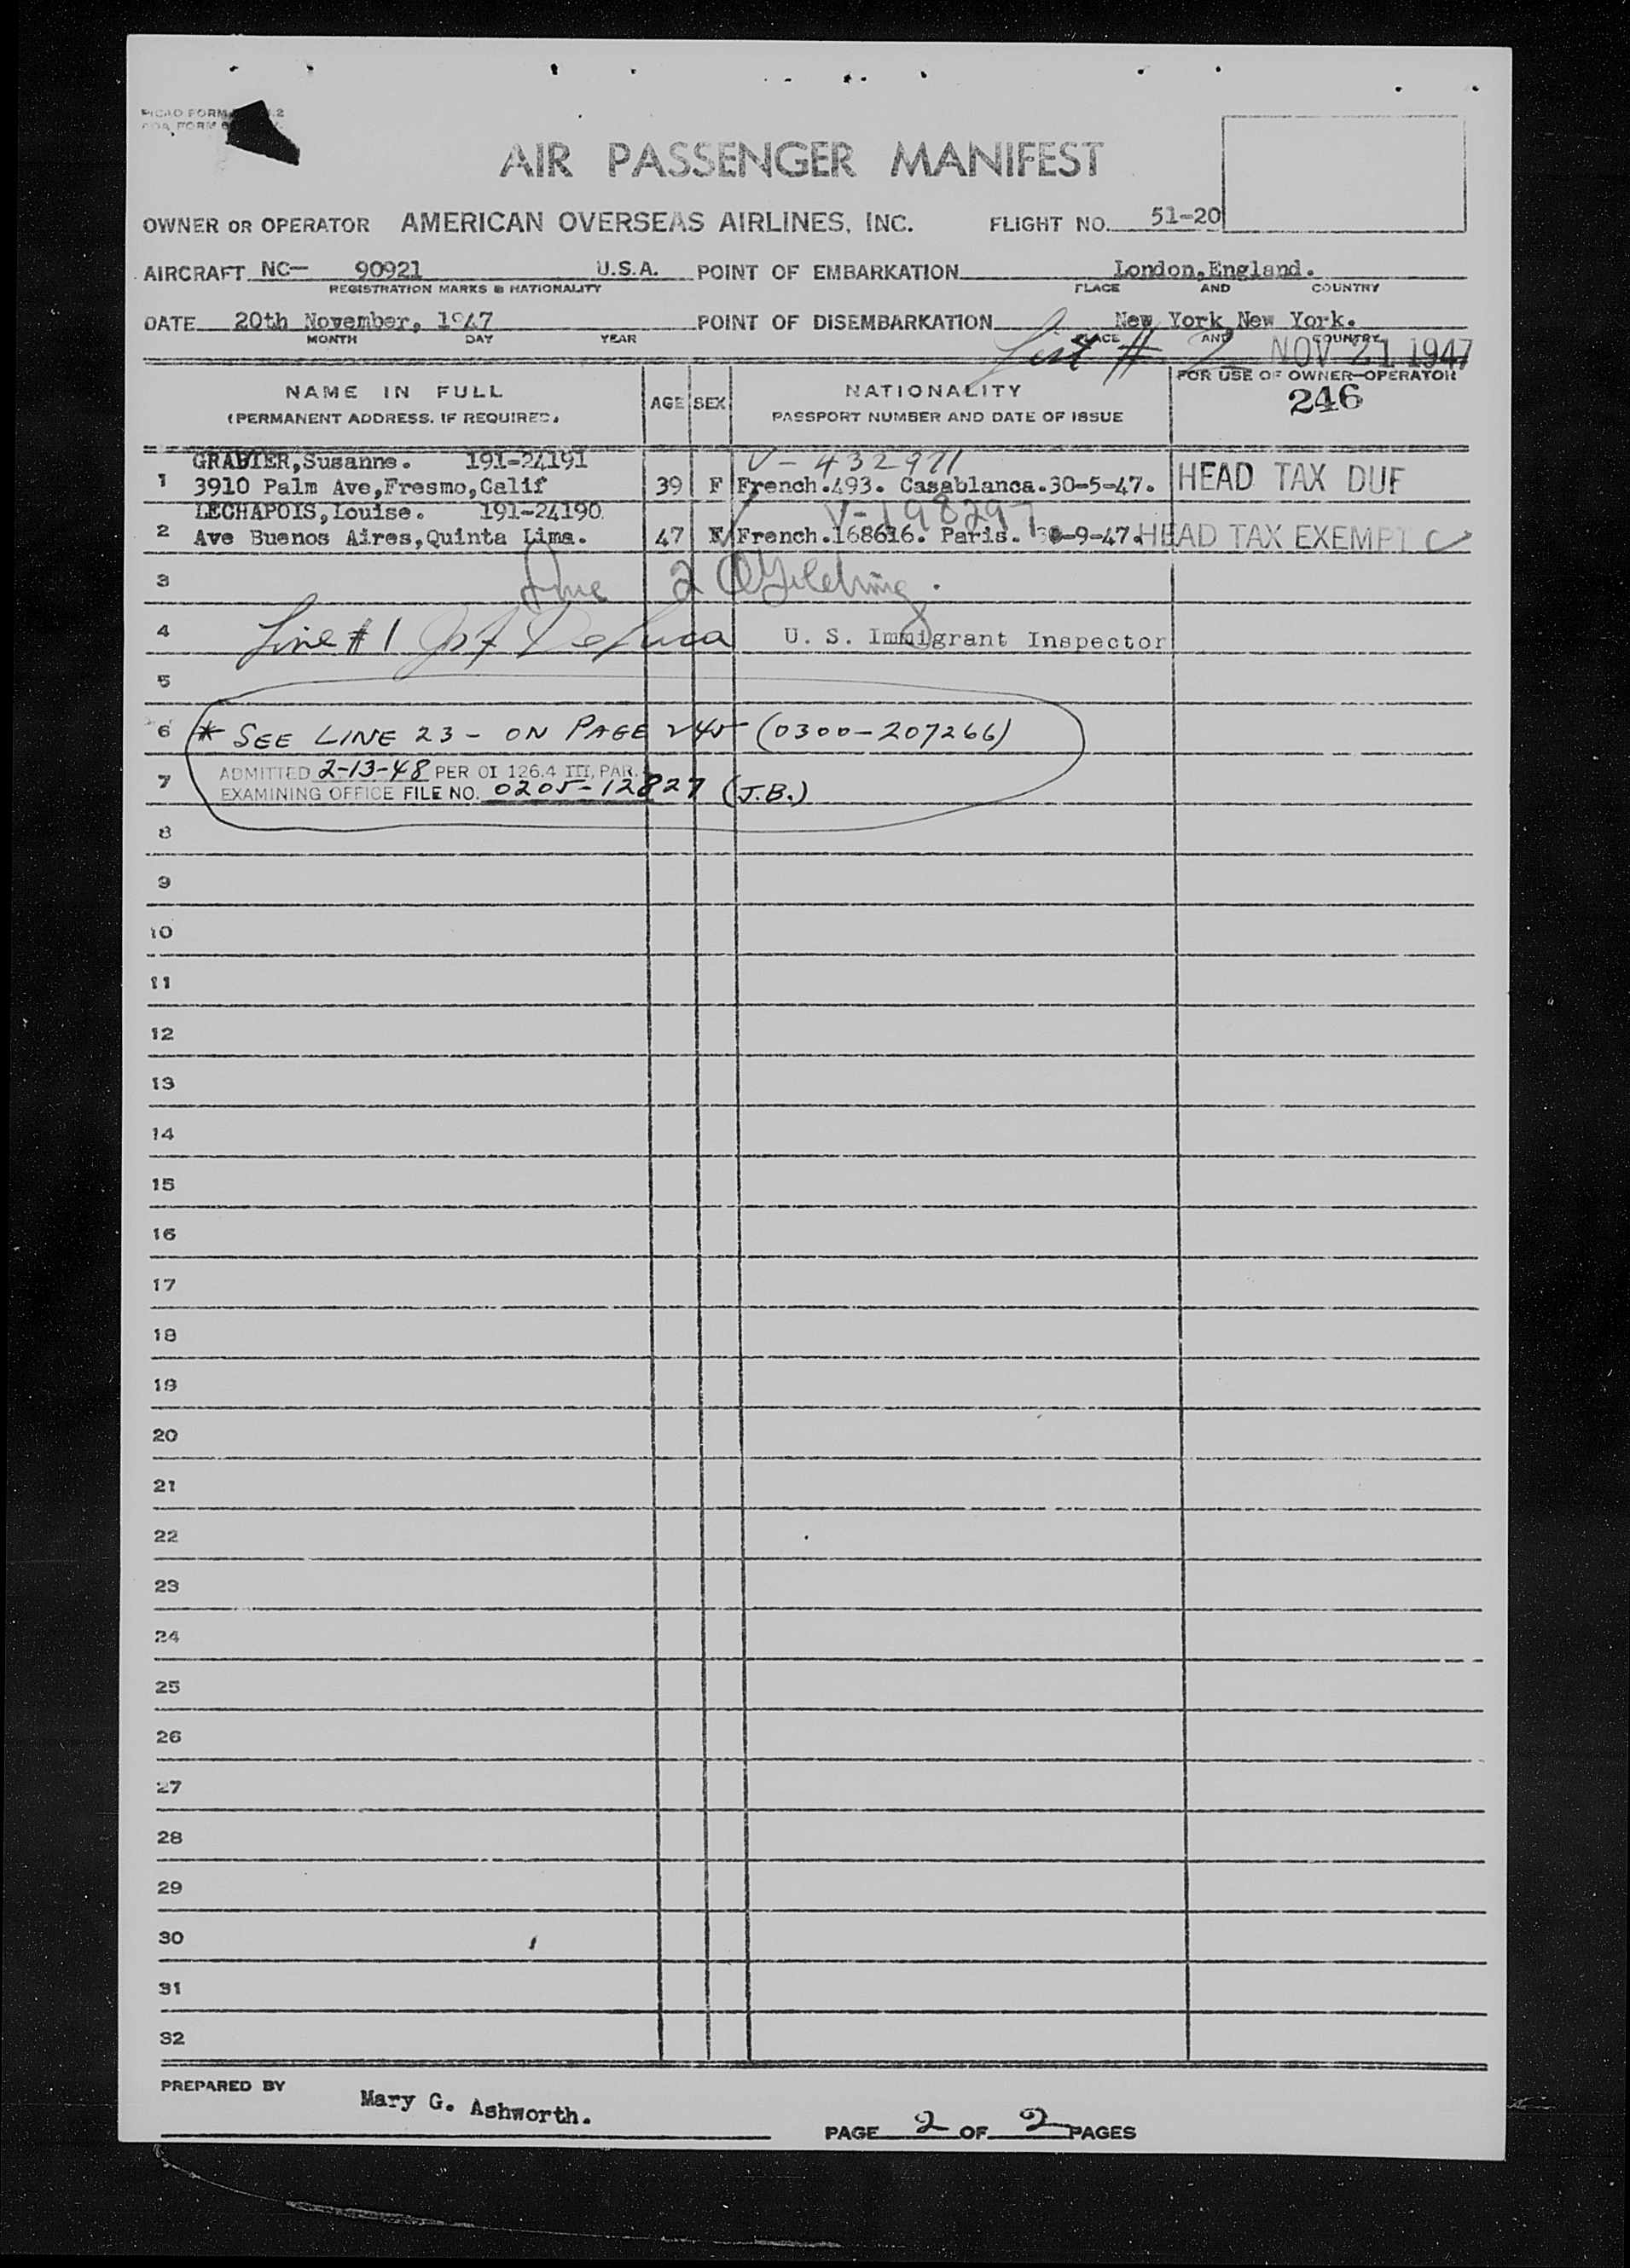 PICAO FORM
AIR PASSENGER MANIFEST
OWNER OR OPERATOR AMERICAN OVERSEAS AIRLINES, INC. FLIGHT NO. 51-20
AIRCRAFT NC— 90921 U.S.A. POINT OF EMBARKATION London,England.
REGISTRATION MARKS & NATIONALITY PLACE AND COUNTRY
DATE 20th November, 1947 POINT OF DISEMBARKATION New York,New York.
MONTH DAY YEAR PLACE AND COUNTRY
List # 2 NOV 21 1947
NAME IN FULL
(PERMANENT ADDRESS, IF REQUIRED)
AGE SEX
NATIONALITY
PASSPORT NUMBER AND DATE OF ISSUE
FOR USE OF OWNER-OPERATOR
246
GRABIER,Susanne. 191-24191 V-432971
1 3910 Palm Ave,Fresmo,Calif 39 F French.493. Casablanca.30-5-47. HEAD TAX DUE
LECHAPOIS,Louise. 191-24190 V-198297
2 Ave Buenos Aires,Quinta Lima. 47 F French.168616. Paris. -9-47. HEAD TAX EXEMPT C
3 2
4 Line #1 Jos DeLuca U. S. Immigrant Inspector
5
6 * SEE LINE 23 - ON PAGE 245 (0300-207266)
7 ADMITTED 2-13-48 PER OI 126.4 III, PAR.
EXAMINING OFFICE FILE NO. 0205-12827 (J.B.)
8
9
10
11
12
13
14
15
16
17
18
19
20
21
22
23
24
25
26
27
28
29
30
31
32
PREPARED BY Mary G. Ashworth.
PAGE 2 OF 2 PAGES